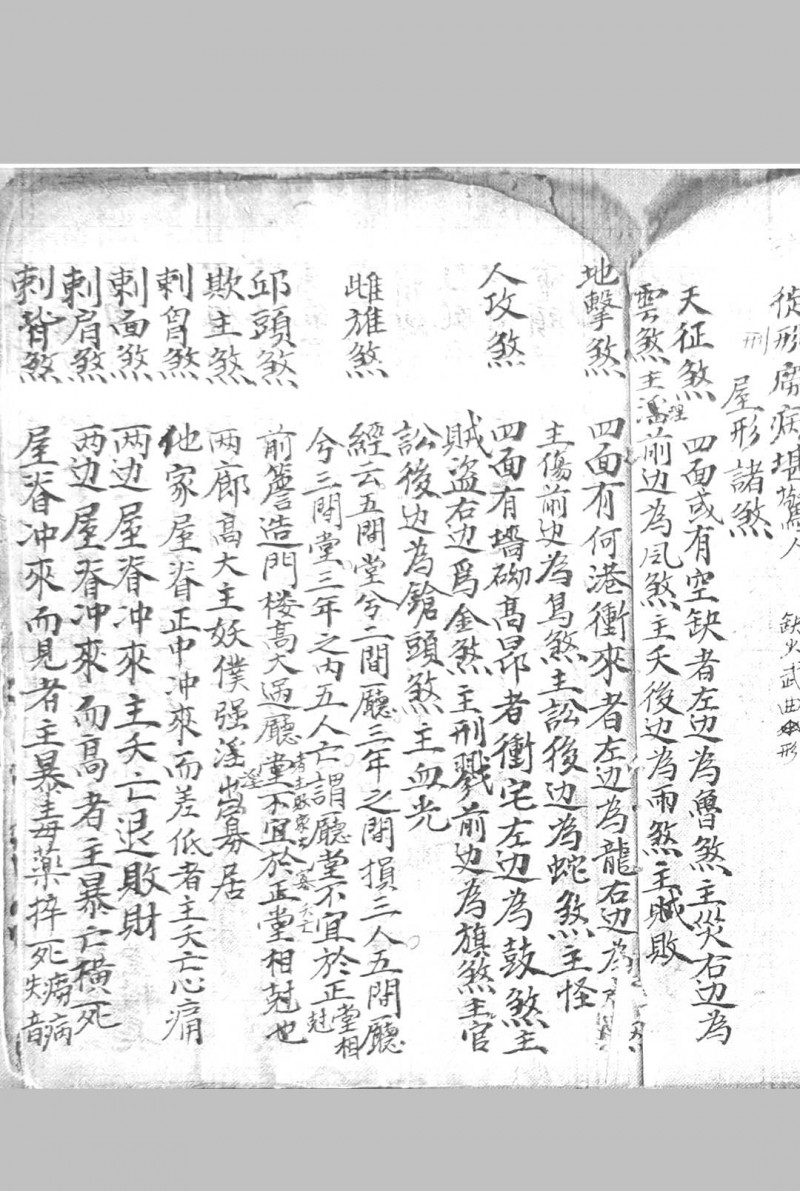 徒形癆病堪驚人
刑
屋形諸煞
缺火武曲形
天征煞 四面或有空缺者左边為魯煞主災右边為
雲煞主滛前边為風煞主夭後边為雨煞主賊敗
地擊煞 四面有何港衝來者左边為龍右边為
主傷前边為鳥煞主訟後边為蛇煞主怪
人攻煞 四面有墻砌髙昂者衝宅左边為鼓煞主
賊盗右边爲金煞主刑戮前边為旗煞主官
訟後边為鎗頭煞主血光
雌雄煞 經云五間堂兮二間廳三年之間損三人五間廳
兮三間堂三年之内五人亡謂廳堂不宜於正堂相尅
邱頭煞 前簷造門楼髙大過廳堂不宜於正堂相尅也
欺主煞 两廊髙大主妖僕强滛出寡居
刺胷煞 他家屋脊正中冲來而差低者主夭亡心痛
刺面煞 两边屋脊冲來主夭亡退敗財
刺肩煞 两边屋脊冲來而髙者主暴亡橫死
刺背煞 屋脊冲來而見者主暴毒藥捽死癆病失音